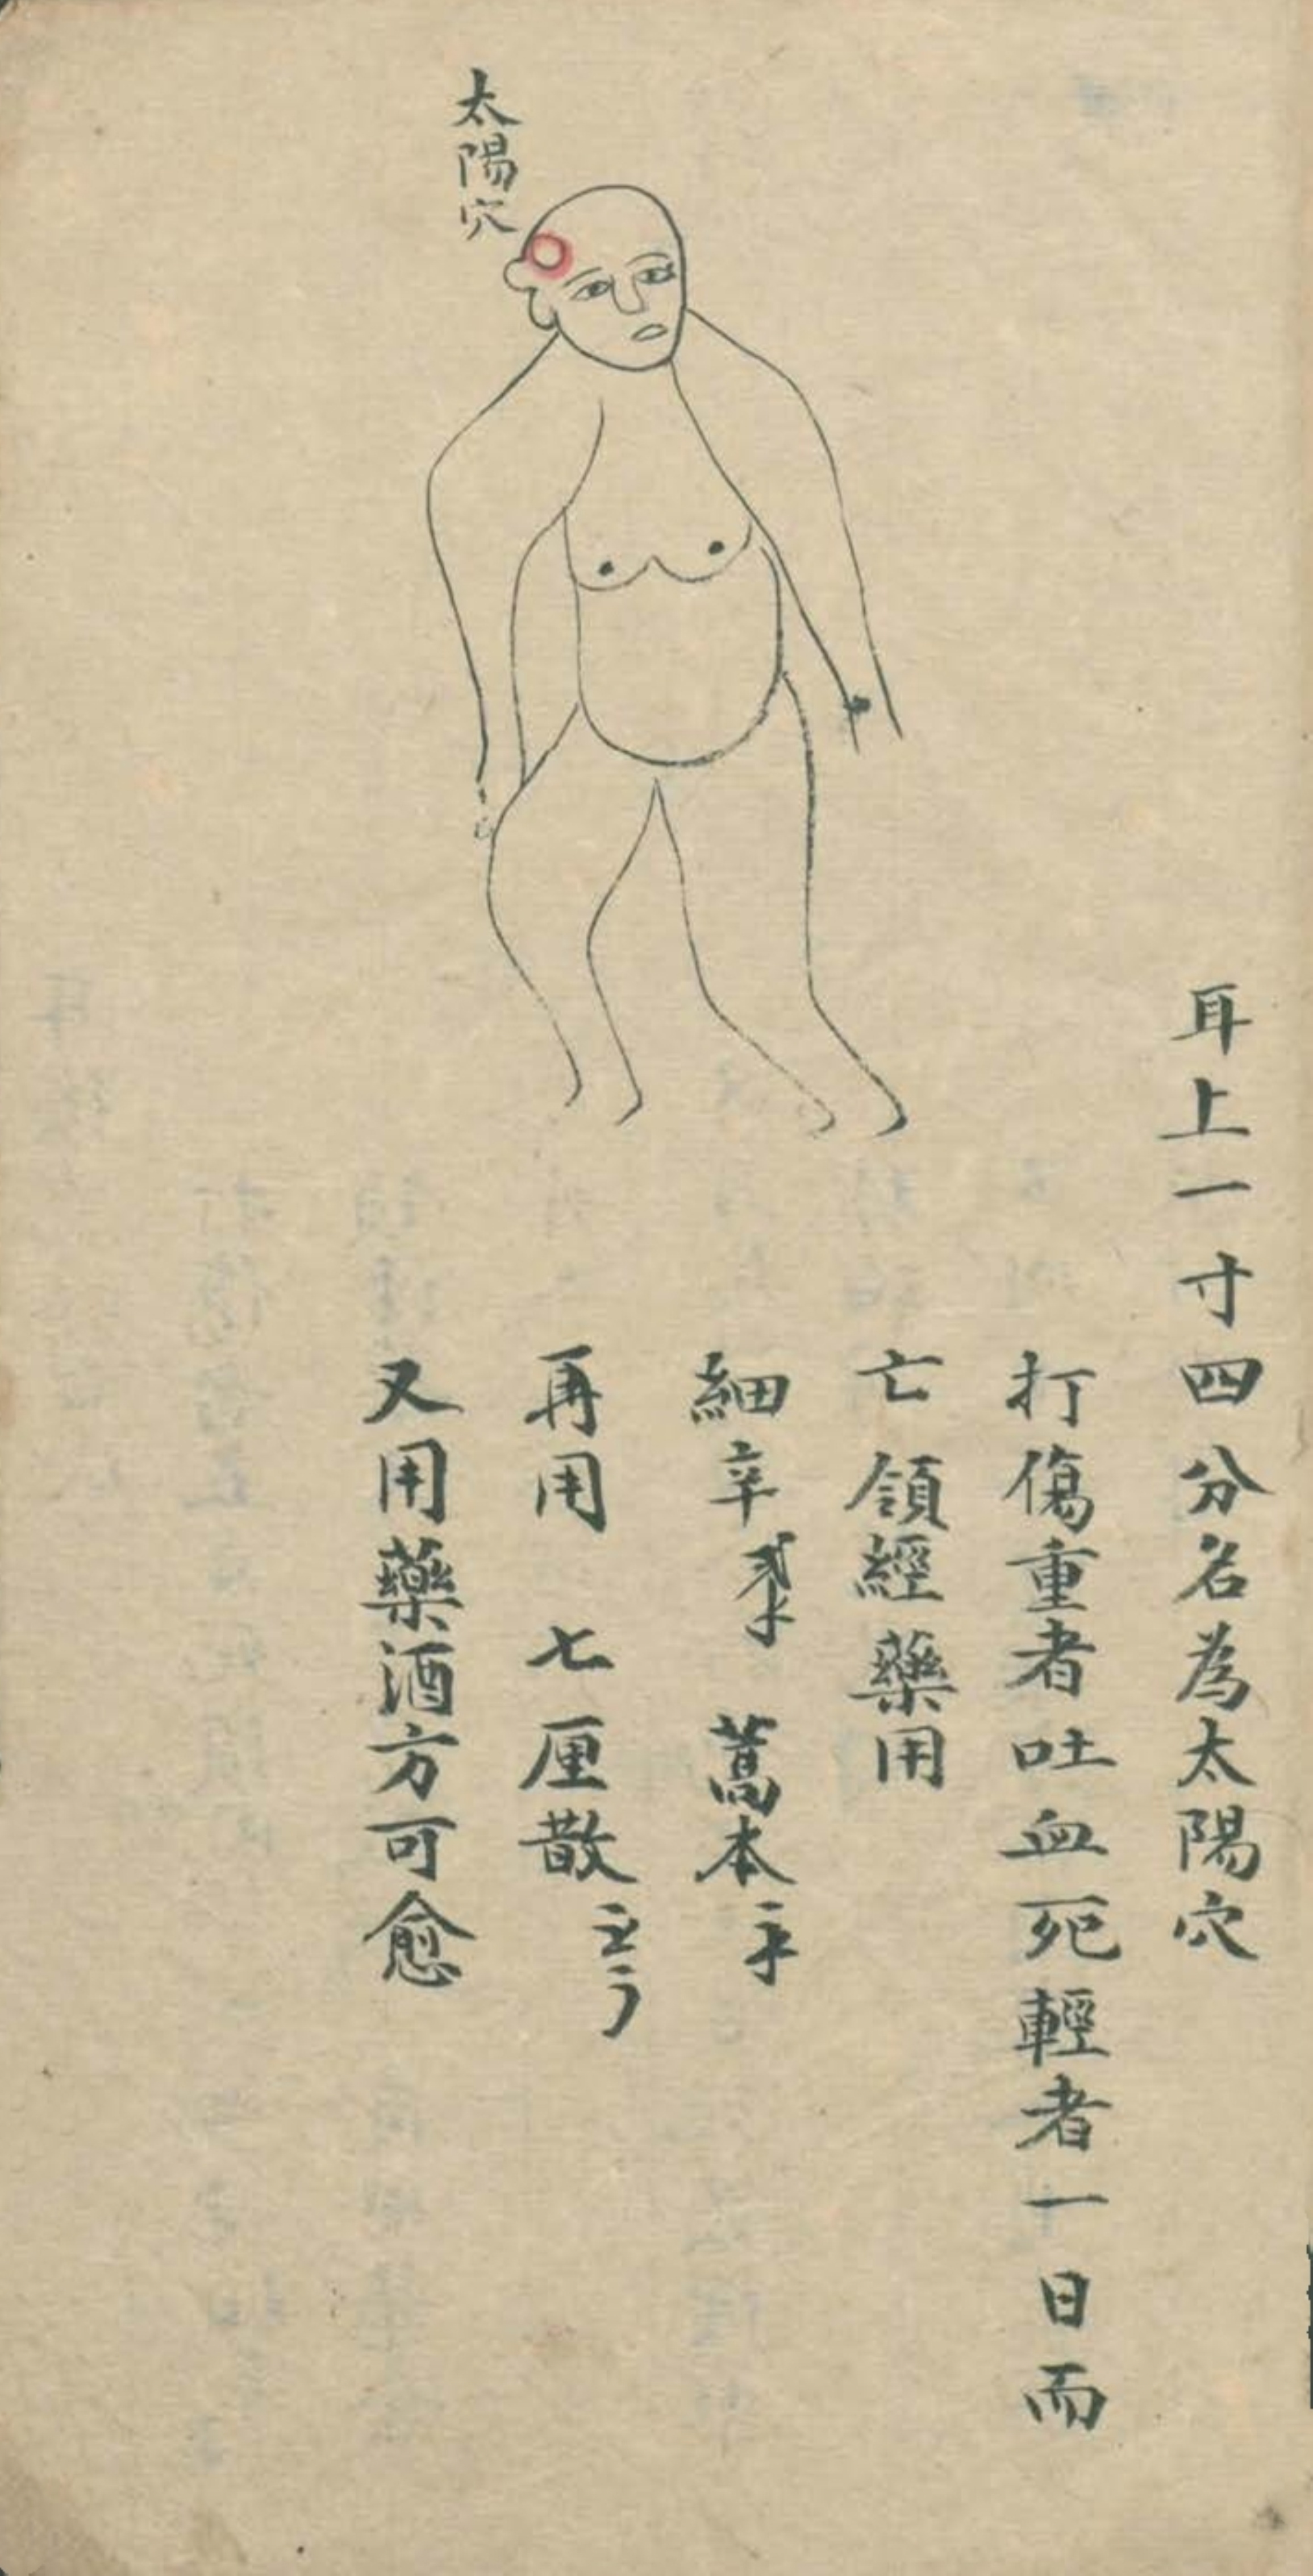 太陽穴
耳上一寸四分名為太陽穴
打傷重者吐血死輕者一日而
亡 領經藥用
細辛 蒿本
再用 七厘散
又用藥酒方可愈